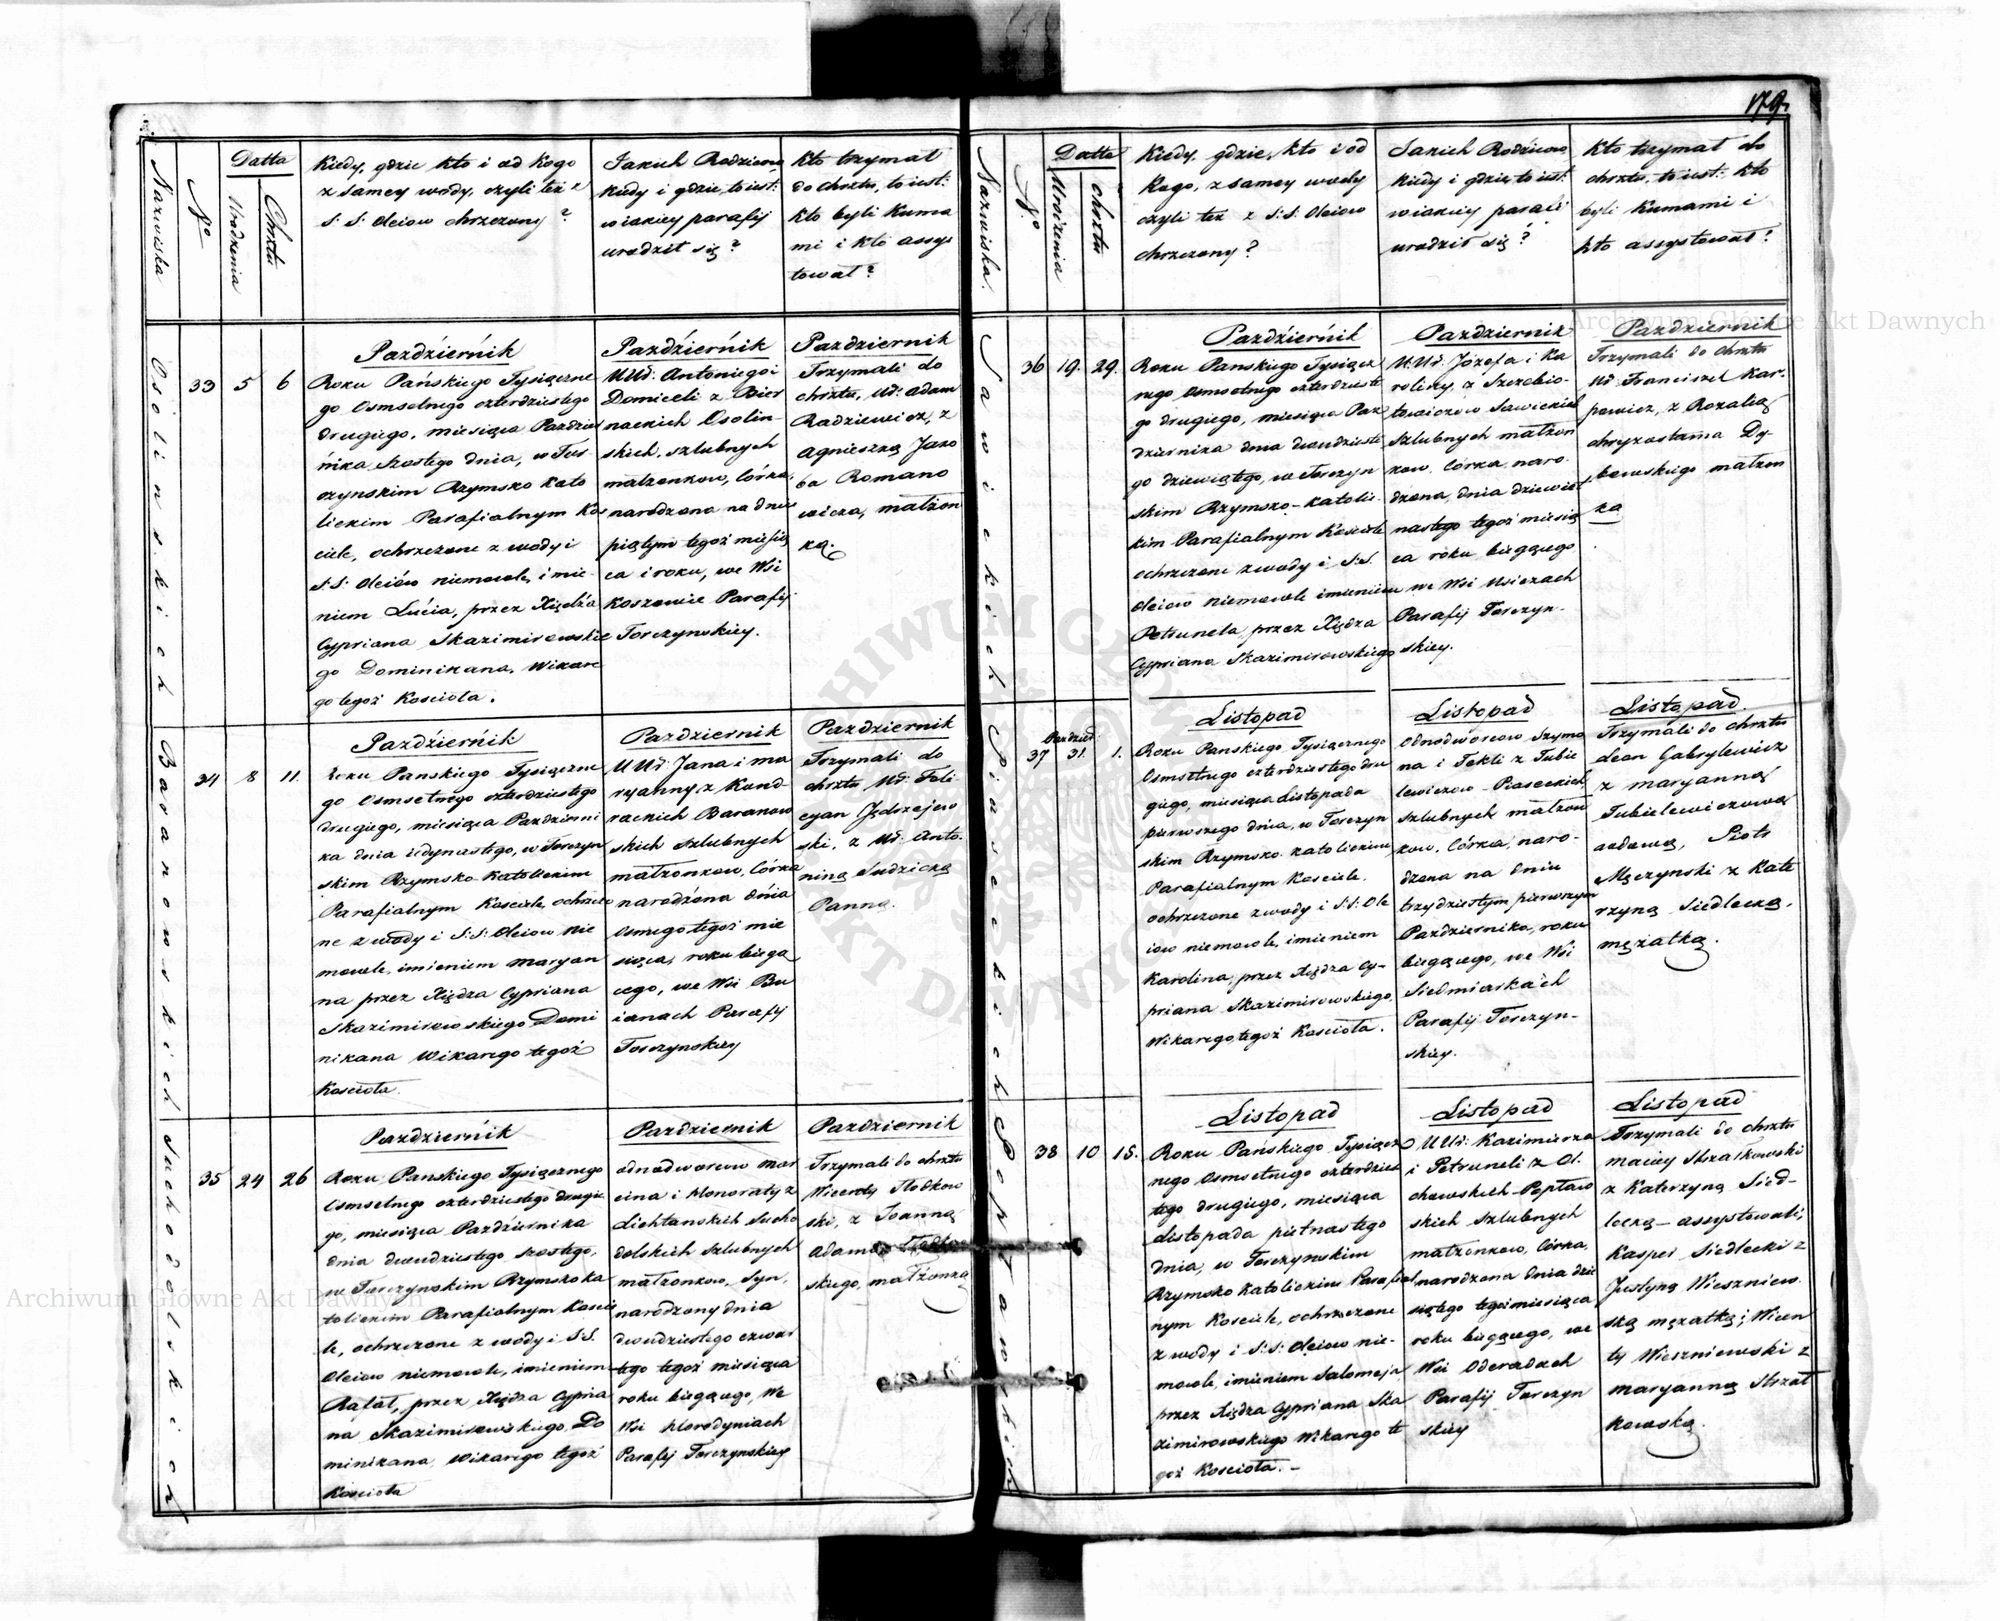 179.
Nazwiska
No
Datta
Urodzenia
Chrztu
Kiedy, gdzie kto i od kogo
z samey wody, czyli też z
S: S: Oleiow chrzczony?
Jakich Rodziców
kiedy i gdzie, to iest:
w iakiey parafij
urodził się?
Kto trzymał
do chrztu, to iest:
kto byli Kuma
mi i kto assys
tował?
Osolinskich
33
5
6
Październik
Roku Pańskiego Tysiączne
go Osmsetnego czterdziestego
drugiego, miesiąca Paździer
nika szostego dnia, w Tor
czynskim Rzymsko kato
lickim Parafialnym Koś
ciele, ochrzczone z wody i
S: S: Oleiów niemowle, imie-
niem Lucia, przez Xiędza
Cypriana Skazimirowskie
go Dominikana, Wikare
go tegoż Kosciola.
Październik
UUr: Antoniego i
Domiceli z Bier
nackich Osolin-
skich, szlubnych
małżonkow, Córka,
narodzona na dniu
piątym tegoż miesią
ca i roku, we Wsi
Koszowie Parafij
Torczynskiey.
Październik
Trzymali do
chrztu, Ur: Adam
Radziewicz, z
Agnieszką Jako
ba Romano
wicza, małżon
ką.
Baranowskich
34
8
11.
Październik
Roku Panskiego Tysiączne
go Osmsetnego czterdziestego
drugiego, miesiąca Październi
ka dnia iedynastego, w Torczyn
skim Rzymsko Katolickim
Parafialnym Kosciele, ochrzczo
ne z wody i S: S: Oleiow nie
mowle, imieniem Maryan
na przez Xiędza Cypriana
Skazimirowskiego Domi
nikana Wikarego tegoż
Kosciola.
Październik
UUr: Jana i Ma
ryanny z Kond-
rackich Baranow
skich szlubnych
małżonkow, Córka
narodzona dnia
osmego tegoż mie
siąca, roku bieżą
cego, we Wsi Bu
ianach Parafij
Torczynskiey
Październik
Trzymali do
chrztu Ur: Feli
cyan Jędrzejew
ski, z Ur: Anto-
niną Sudzicką
Panną.
Suchodolskich
35
24
26
Październik
Roku Panskiego Tysiącznego
Osmsetnego czterdziestego drugie
go, miesiąca Października
dnia dwudziestego szostego,
w Torczynskim Rzymsko ka
tolickim Parafialnym Koscie
le, ochrzczone z wody i S: S.
Oleiow niemowle, imieniem
Rafał, przez Xiędza Cypria
na Skazimirowskiego Do
minikana, Wikarego tegoż
Kosciola
Październik
odnodworcow Mar
cina i Honoraty z
Lichtanskich Sucho
dolskich szlubnych
małżonkow, Syn,
narodzony dnia
dwudziestego czwar
tego tegoż miesiąca
roku bieżącego, We
Wsi Horodyniach
Parafij Torczynskiey
Październik
Trzymali do chrztu
Wicenty
ski, z Joanną
Adama
skiego, małżonką
Nazwiska.
No
Datta
Urodzenia
Chrztu
Kiedy, gdzie, kto i od
Kogo, z samey wody
czyli też z S: S: Oleiow
chrzczony?
Jakich Rodziców
kiedy i gdzie, to iest:
w iakiey parafi
urodził się?
Kto trzymał do
chrztu, to iest: kto
byli Kumami i
kto assystował?
Sawickich
36
19.
29.
Październik
Roku Panskiego Tysiącz
nego Osmsetnego czterdzieste
go drugiego, miesiąca Paź
dziernika dnia dwudzieste
go dziewiątego, w Torczyn
skim Rzymsko-katolic-
kim Parafialnym Kościele
ochrzczone z wody i S: S.
Oleiow niemowle imieniem
Petrunela, przez Xiędza
Cypriana Skazimirowskiego
Październik
UUr: Józefa i Ka
roliny, z Szczebio-
towiczow Sawickich
szlubnych małżon
kow, Córka, naro-
dzona, dnia dziewięt
nastego tegoż miesią
ca roku bieżącego
we Wsi Usiczach
Parafij Torczyn-
skiey.
Październik
Trzymali do chrztu
Ur: Franciszek Kar-
powicz, z Rozalią
Chryzostama Dy-
bowskiego małżon
ką
Piaseckich
37
Paździer
31.
1.
Listopad
Roku Panskiego Tysiącznego
Osmsetnego czterdziestego dru
giego, miesiąca Listopada
pierwszego dnia, w Torczyn
skim Rzymsko katolickim
Parafialnym Kosciele,
ochrzczone z wody i S: S: Ole
iow niemowle, imieniem
Karolina, przez Xiędza Cy-
priana Skazimirowskiego,
Wikarego tegoż Kosciola.
Listopad
Odnodworcow Szymo
na i Tekli z Tubie
lewiczow Piaseckich
szlubnych małżon
kow, Córka, naro-
dzona na dniu
trzydziestym pierwszym
Października, roku
bieżącego, we Wsi
Siedmiarkach
Parafij Torczyn-
skiey.
Listopad.
Trzymali do chrztu
Leon Gabrylewicz
z Maryanną
Tubielewiczową
wdową, Piotr
Męczynski z Kata
rzyną Siedlecką,
mężatką.
Popławskich
38
10
15.
Listopad
Roku Pańskiego Tysiącz
nego Osmsetnego czterdzies
tego drugiego, miesiąca
Listopada pietnastego
dnia, w Torczynskim
Rzymsko Katolickim Parafial
nym Kosciele, ochrzczone
z wody i S: S: Oleiow nie-
mowle, imieniem Salomeja
przez Xiędza Cypriana Ska
zimirowskiego Wikarego te
goż Kosciola. -
Listopad
UUr: Kazimierza
i Petruneli z Ol
chowskich Popław
skich szlubnych
małżonkow, Córka,
narodzona dnia dzie
siątego tegoż miesiąca
roku bieżącego, we
Wsi Oderadach
Parafij Torczyn
skiey
Listopad
Trzymali do chrztu
Maciey Strzałkowski
z Katerzyną Sied-
lecką - assystowali,
Kasper Siedlecki z
Justyną Wiszniew
ską mężatką; Wicen
ty Wiszniewski z
Maryanną Strzał
kowską.
Archiwum Główne Akt Dawnych
Archiwum Główne Akt Dawnych